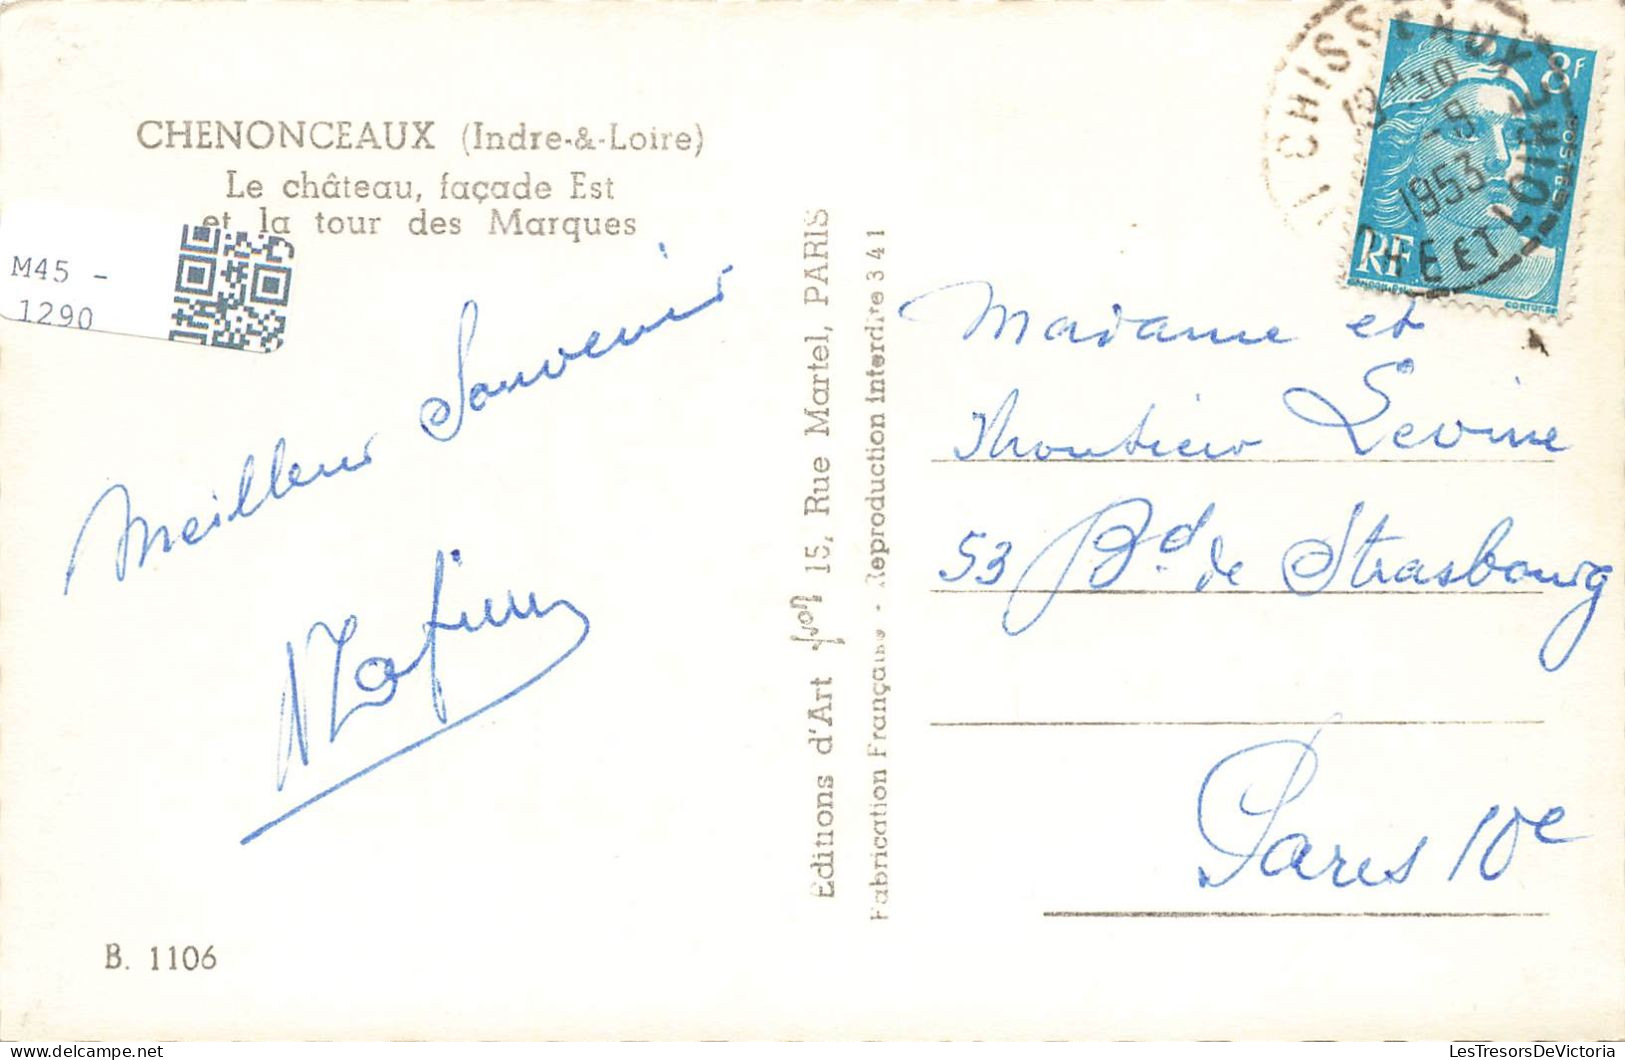 CHENONCEAUX (Indre-&-Loire)
Le château, façade Est
et la tour des Marques
M45 -
1290
Meilleur Souvenir
B. 1106
Editions d'Art Yvon 15, Rue Martel, PARIS
Fabrication Française - Reproduction interdite 341
CHISSEAUX
18 H30
-9
1953
ET LOIRE
8F
POSTES
RF
Madame et
Monsieur Levine
53 Bd de Strasbourg
Paris 10e
LesTresorsDeVictoria